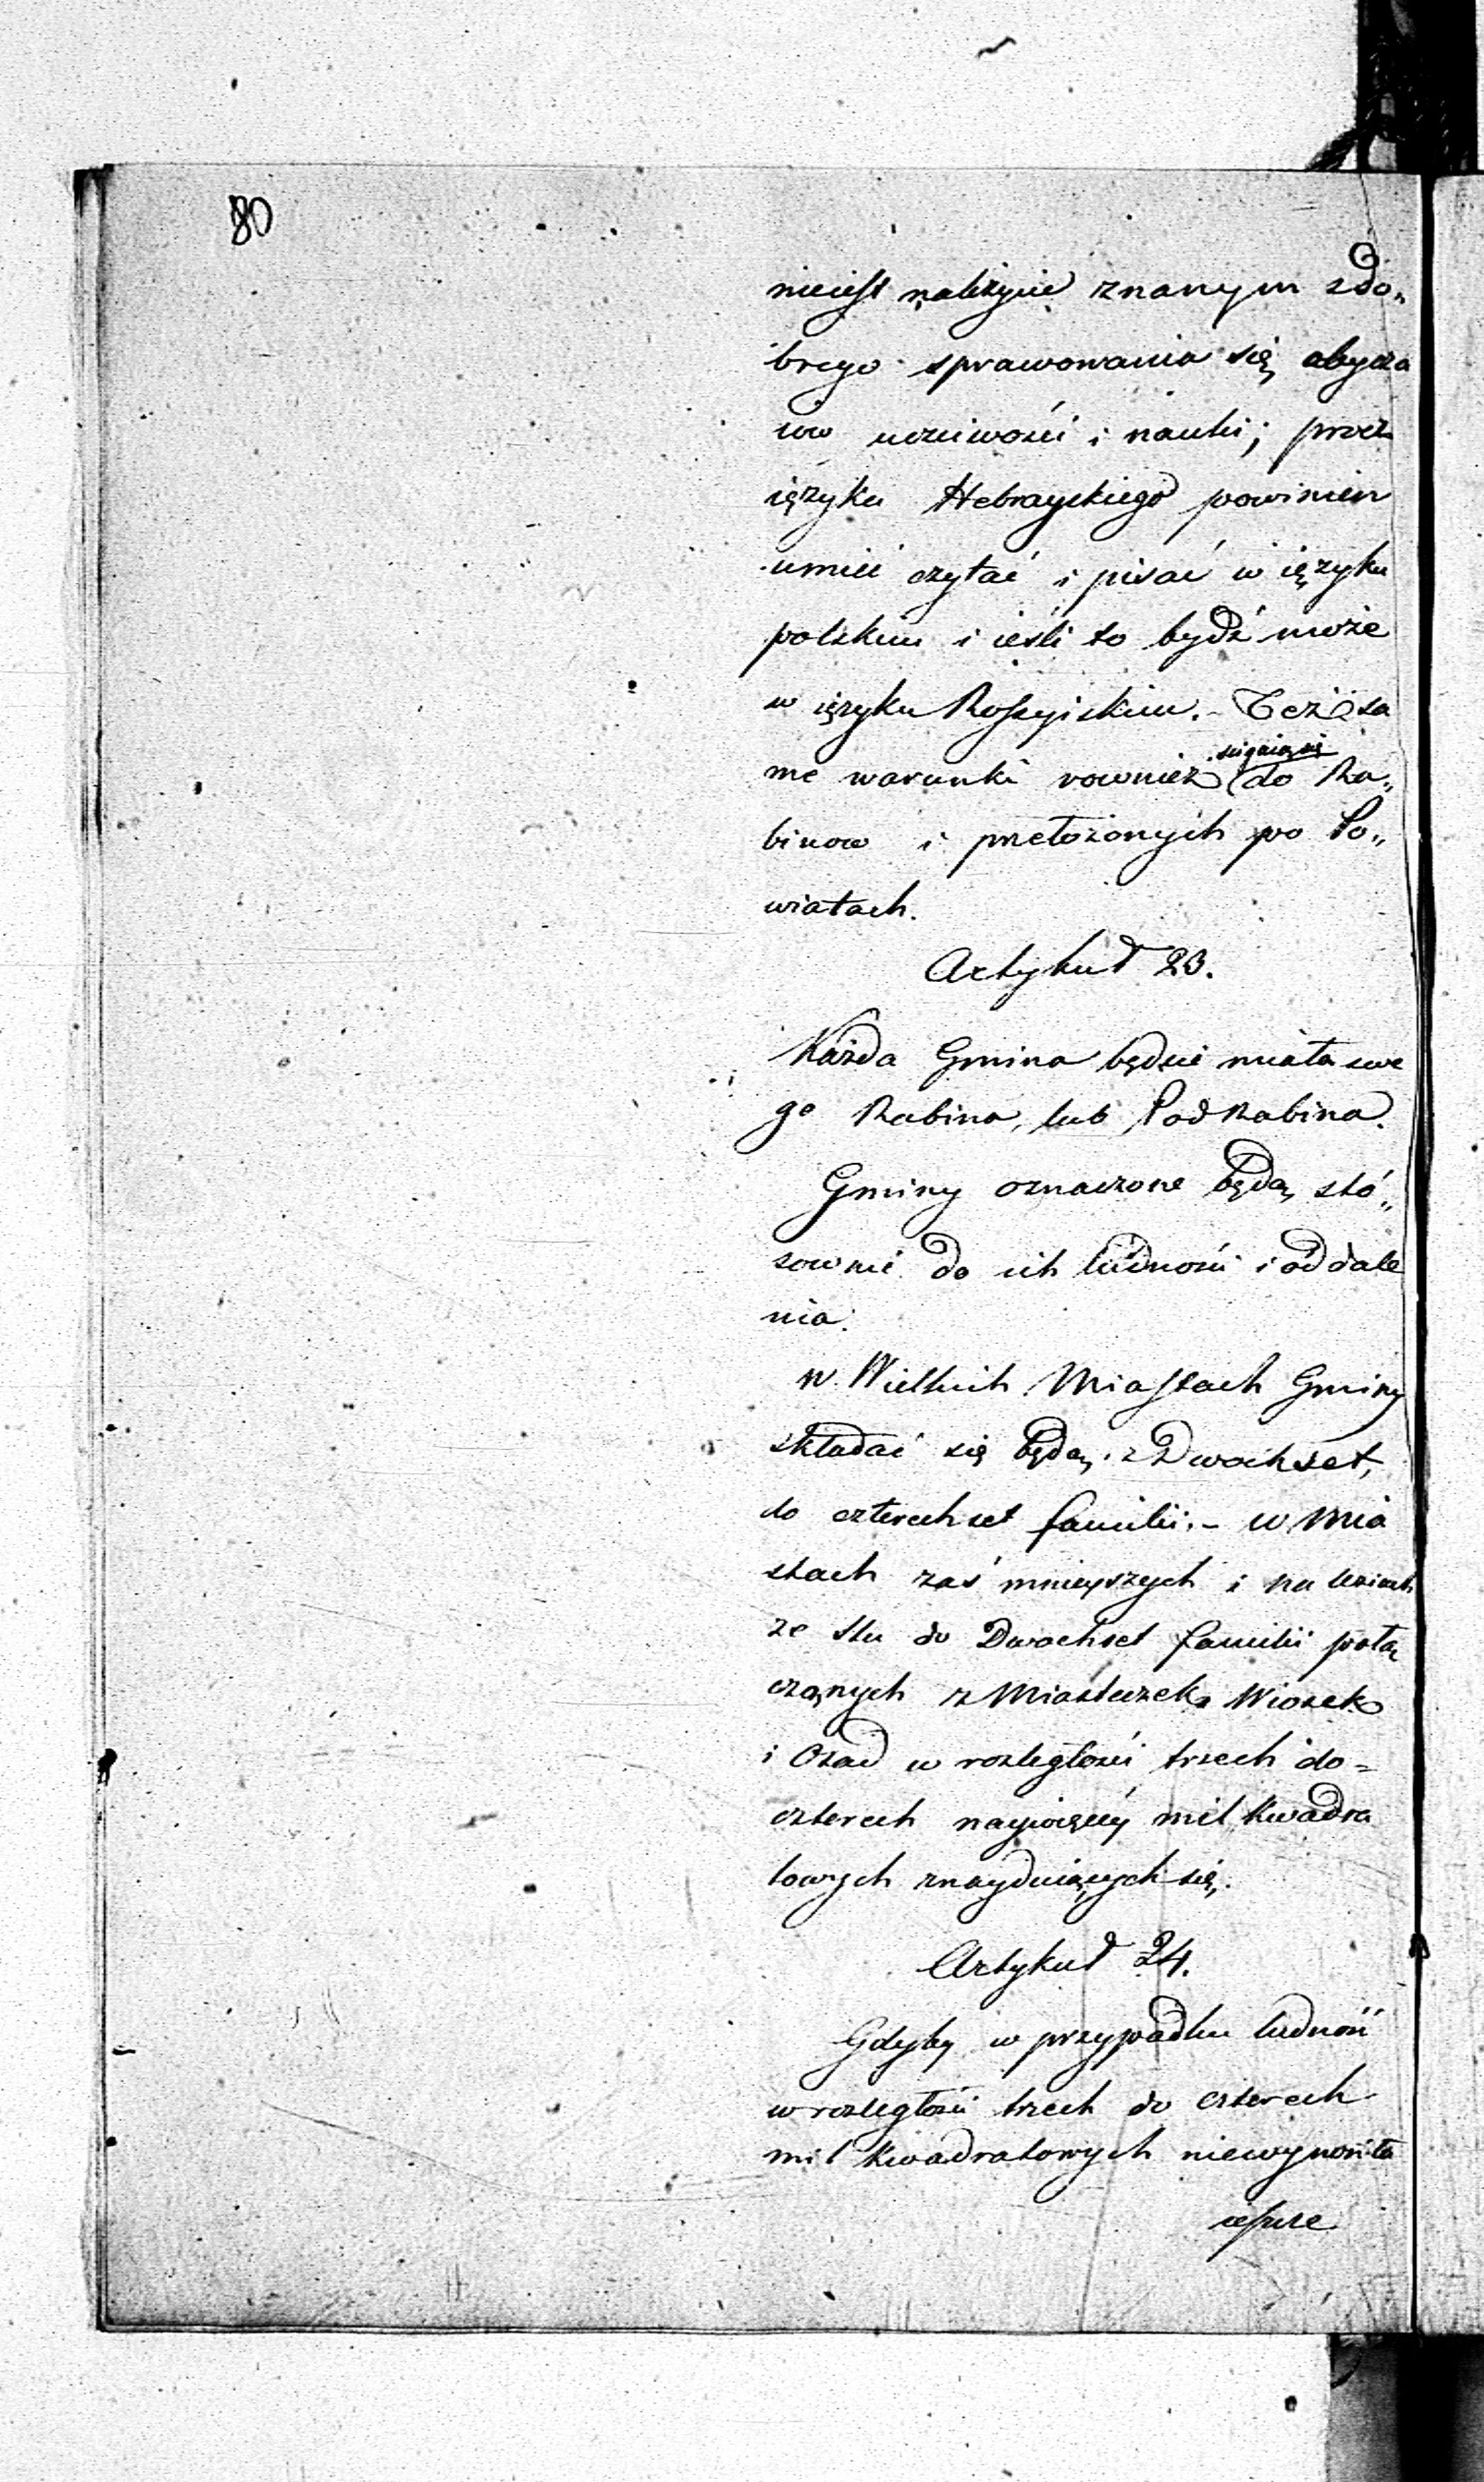 80
nieiest należycie znanym z do„
brego sprawowania się, obycza
iow uczciwości i nauki; procz
ięzyka Hebrayskiego powinien
umieć czytać i pisać w ięzyku
polskim i ieśli to bydź może
w ięzyku Rossyiskim. – Też sa
me warunki rownież sciągaią się do Ra„
binow i przełożonych po Po„
wiatach.
Artykuł 23.
Każda Gmina będzie miała swe
go Rabina, lub PodRabina.
Gminy oznaczone będą, stó„
sownie do ich ludności i oddale
nia.
w Wielkich Miastach Gminy
składać się będą, z Dwochset,
do czterechset familii. – w Mia
stach zaś mnieyszych i na wsiach
ze stu do Dwochset familii połą
czonych z Miasteczek, Wiosek
i Osad w rozległości trzech do =
czterech naywięcéy mil Kwadra
towych znayduiących się.
Artykuł 24.
Gdyby w przypadku ludność
w rozległości trzech do czterech
mil Kwadratowych niewynosiła
ieszcze